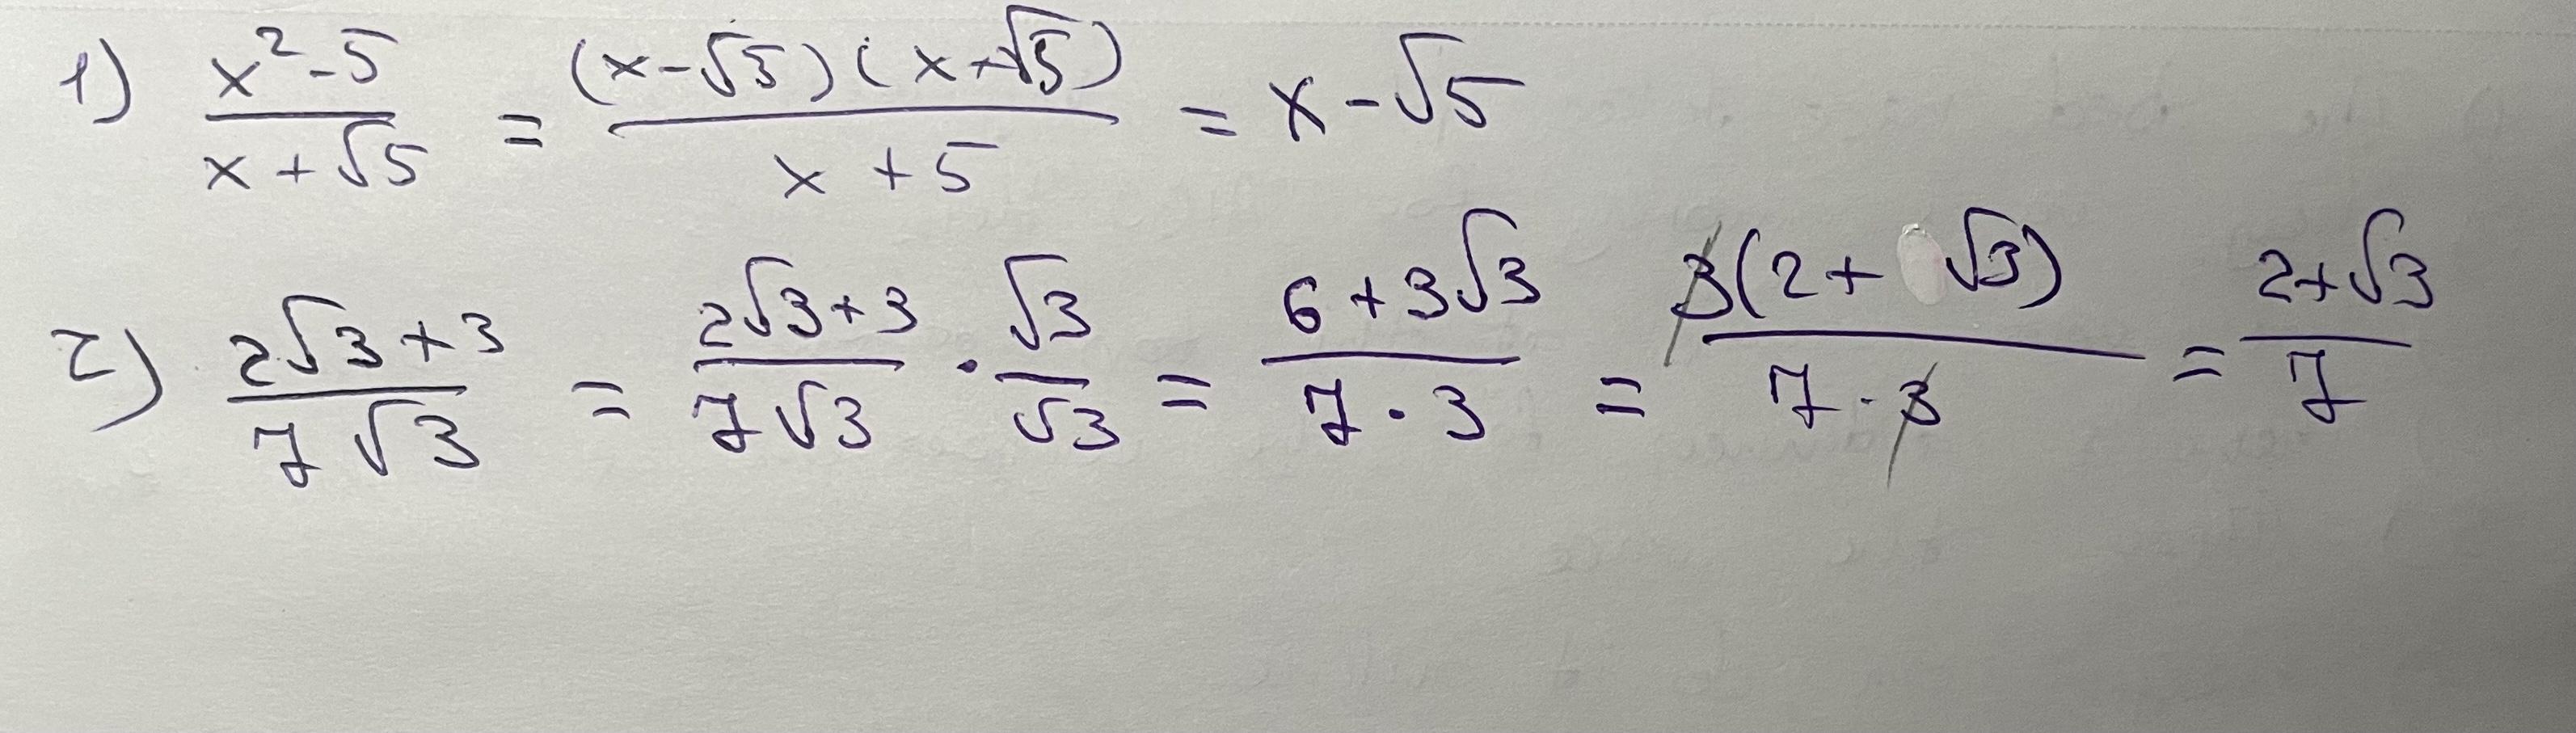 1) (x²-5)/(x+√5) = ((x-√5)(x+√5))/(x+5) = x-√5
2) (2√3+3)/(7√3) = (2√3+3)/(7√3) · √3/√3 = (6+3√3)/(7·3) = (3(2+√3))/(7·3) = (2+√3)/7